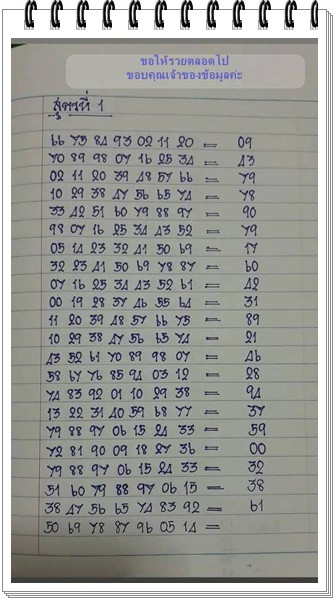 ขอให้รวยตลอดไป
ขอบคุณเจ้าของข้อมูลค่ะ
สูตรที่ 1
66 75 84 93 02 11 20 = 09
70 89 98 07 16 25 34 = 43
02 11 20 39 48 57 66 = 79
10 29 38 47 56 65 74 = 78
33 42 51 60 79 88 97 = 90
98 07 16 25 34 43 52 = 79
05 14 23 32 41 50 69 = 17
32 23 41 50 69 78 87 = 60
07 16 25 34 43 52 61 = 42
00 19 28 37 46 55 64 = 31
11 20 39 48 57 66 75 = 89
10 29 38 47 56 65 74 = 21
43 52 61 70 89 98 07 = 46
58 67 76 85 94 03 12 = 28
74 83 92 01 10 29 38 = 94
13 22 31 40 59 68 77 = 37
79 88 97 06 15 24 33 = 59
72 81 90 09 18 27 36 = 00
79 88 97 06 15 24 33 = 32
51 60 79 88 97 06 15 = 38
38 47 56 65 74 83 92 = 61
50 69 78 87 96 05 14 =